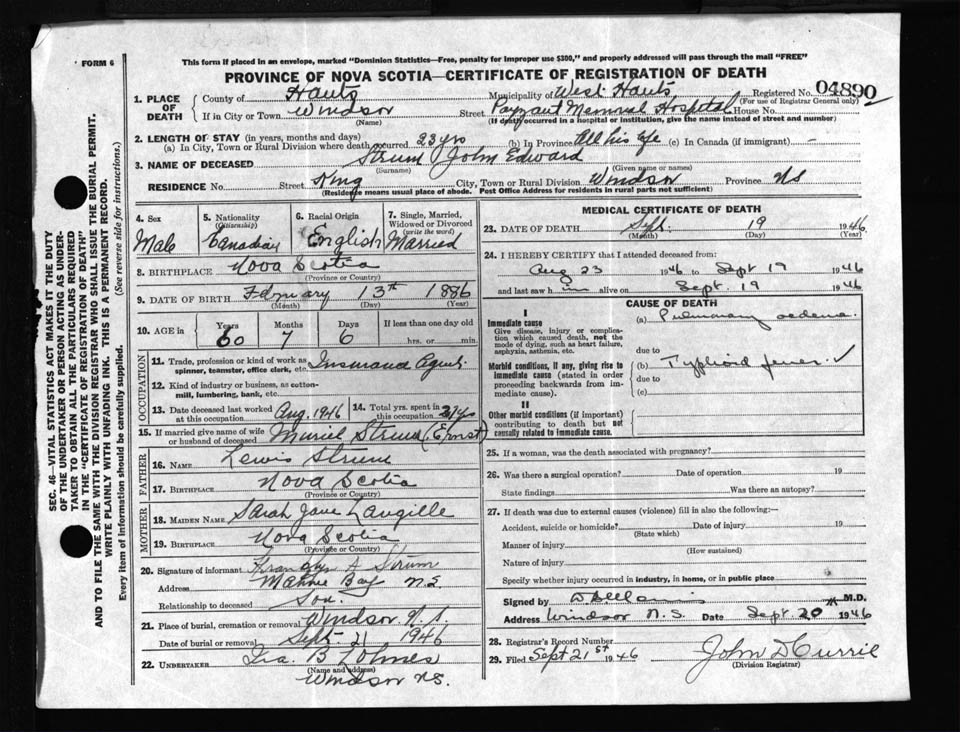 FORM 6
This form if placed in an envelope, marked "Dominion Statistics—Free, penalty for improper use $300," and properly addressed will pass through the mail "FREE"
PROVINCE OF NOVA SCOTIA—CERTIFICATE OF REGISTRATION OF DEATH
1. PLACE OF DEATH County of Hants Municipality of West Hants Registered No. 04890
(For use of Registrar General only)
If in City or Town Windsor Street Payzant Memorial Hospital House No.
(Name) (If death occurred in a hospital or institution, give the name instead of street and number)
2. LENGTH OF STAY (in years, months and days)
(a) In City, Town or Rural Division where death occurred 23 yrs (b) in Province All his life (c) In Canada (if immigrant) —
3. NAME OF DECEASED Strum John Edward
(Surname) (Given name or names)
RESIDENCE No. Street King City, Town or Rural Division Windsor Province NS
(Residence means usual place of abode. Post Office Address for residents in rural parts not sufficient)
4. Sex Male
5. Nationality (Citizenship) Canadian
6. Racial Origin English
7. Single, Married, Widowed or Divorced (write the word) Married
8. BIRTHPLACE Nova Scotia
(Province or Country)
9. DATE OF BIRTH February 13th 1886
(Month) (Day) (Year)
10. AGE in Years 60 Months 7 Days 6 If less than one day old hrs. or min.
OCCUPATION
11. Trade, profession or kind of work as spinner, teamster, office clerk, etc. Insurance Agent.
12. Kind of industry or business, as cotton-mill, lumbering, bank, etc.
13. Date deceased last worked at this occupation Aug. 1946
14. Total yrs. spent in this occupation 21 yrs
15. If married give name of wife or husband of deceased Muriel Strum (Ernst)
FATHER
16. NAME Lewis Strum
17. BIRTHPLACE Nova Scotia
(Province or Country)
MOTHER
18. MAIDEN NAME Sarah Jane Langille
19. BIRTHPLACE Nova Scotia
(Province or Country)
20. Signature of informant Franklyn A Strum
Address Mahone Bay N.S.
Relationship to deceased Son.
21. Place of burial, cremation or removal Windsor N.S.
Date of burial or removal Sept 21 1946
22. UNDERTAKER Ira. B Lohnes
(Name and address)
Windsor NS.
MEDICAL CERTIFICATE OF DEATH
23. DATE OF DEATH Sept. 19 1946
(Month) (Day) (Year)
24. I HEREBY CERTIFY that I attended deceased from:
Aug 23 1946 to Sept 19 1946
and last saw him alive on Sept. 19 1946
CAUSE OF DEATH
I
Immediate cause
Give disease, injury or complication which caused death, not the mode of dying, such as heart failure, asphyxia, asthenia, etc.
(a) Pulmonary oedema.
due to
Morbid conditions, if any, giving rise to immediate cause (stated in order proceeding backwards from immediate cause).
(b) Typhoid fever. ✓
due to
(c)
II
Other morbid conditions (if important) contributing to death but not causally related to immediate cause.
25. If a woman, was the death associated with pregnancy?
26. Was there a surgical operation? Date of operation 19
State findings Was there an autopsy?
27. If death was due to external causes (violence) fill in also the following:—
Accident, suicide or homicide? Date of injury 19
(State which)
Manner of injury
(How sustained)
Nature of injury
Specify whether injury occurred in industry, in home, or in public place
Signed by M.D.
Address Windsor N.S. Date Sept. 20 1946
28. Registrar's Record Number
29. Filed Sept 21st 1946 John D Currie
(Division Registrar)
SEC. 46—VITAL STATISTICS ACT MAKES IT THE DUTY
OF THE UNDERTAKER OR PERSON ACTING AS UNDER-
TAKER TO OBTAIN ALL THE PARTICULARS REQUIRED
IN THE "CERTIFICATE OF REGISTRATION OF DEATH"
AND TO FILE THE SAME WITH THE DIVISION REGISTRAR WHO SHALL ISSUE THE BURIAL PERMIT.
WRITE PLAINLY WITH UNFADING INK. THIS IS A PERMANENT RECORD.
Every item of information should be carefully supplied. (See reverse side for instructions.)